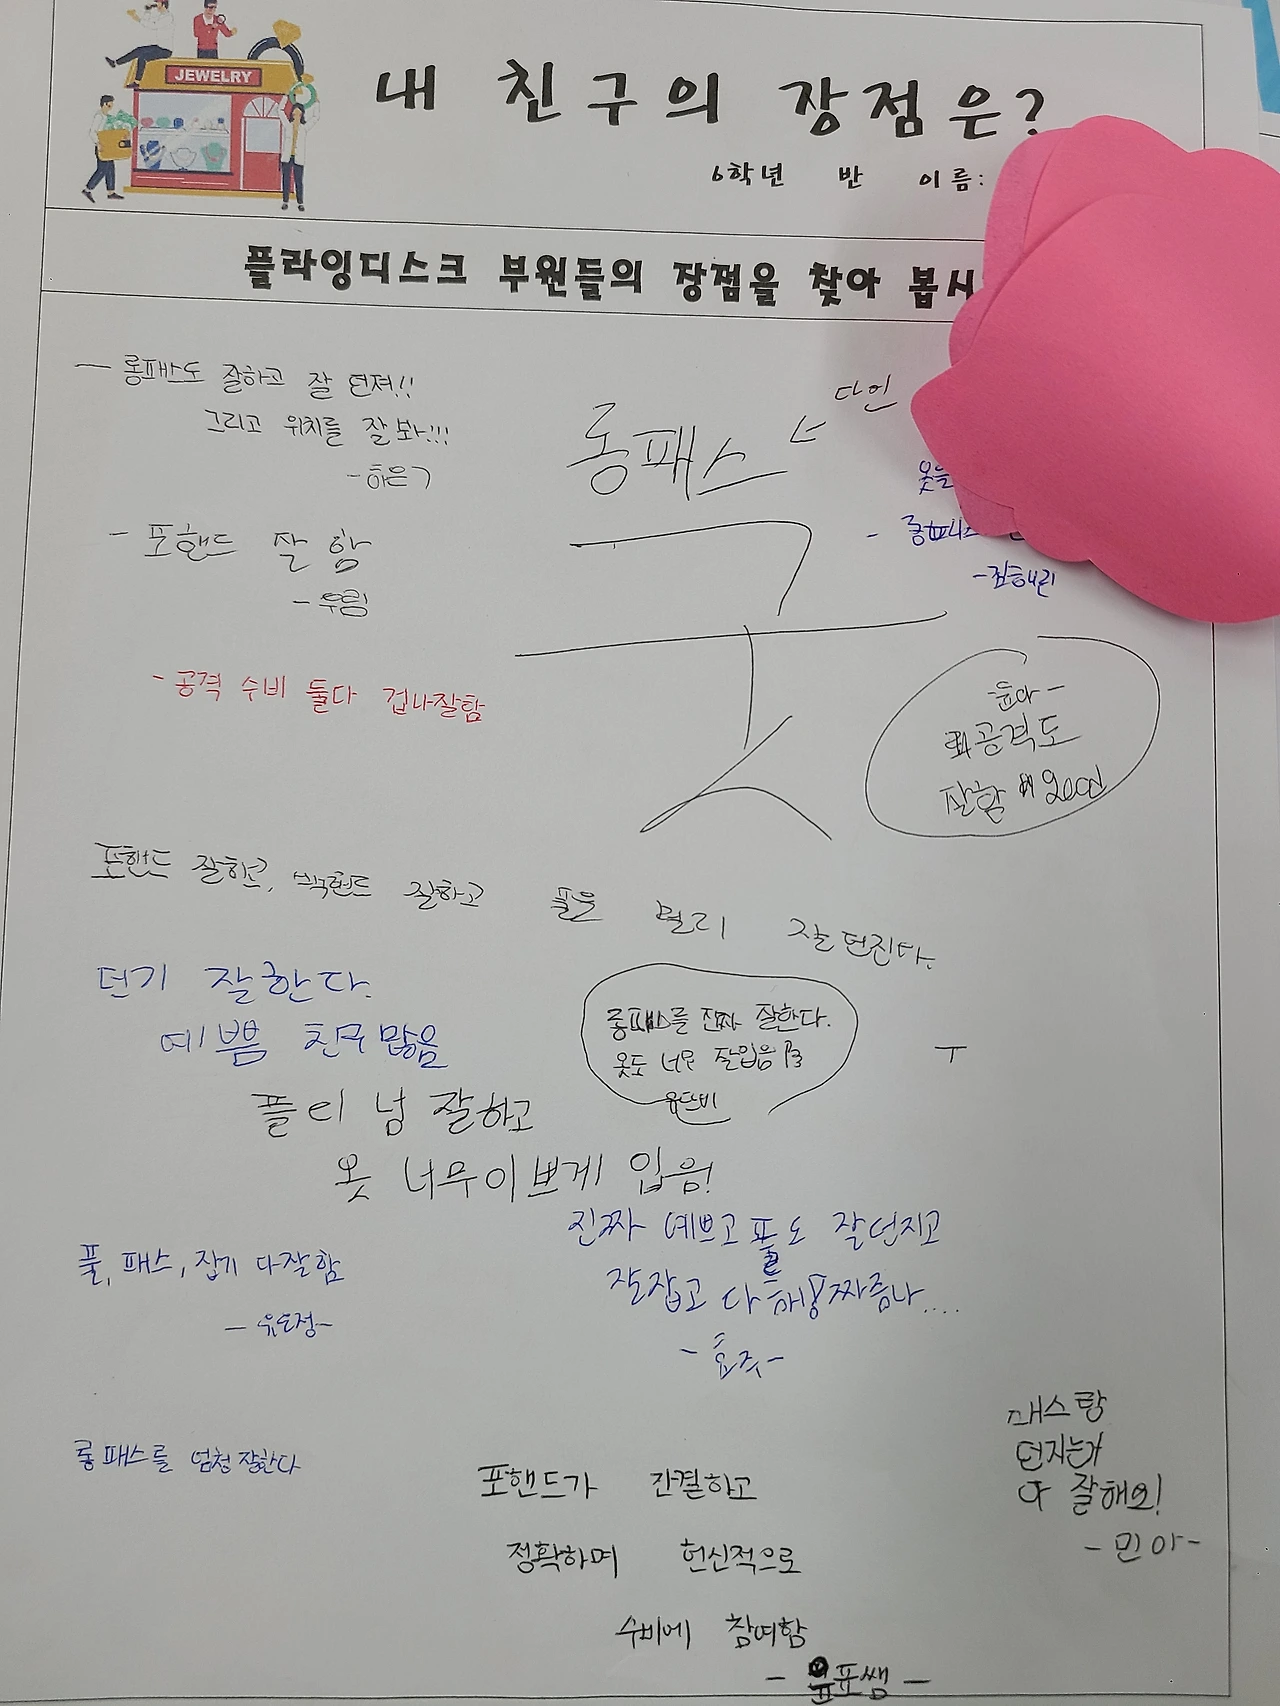 JEWELRY
내 친구의 장점은?
6학년 반 이름:
플라잉디스크 부원들의 장점을 찾아 봅시
- 롱패스도 잘하고 잘 던져!!
그리고 위치를 잘 봐!!!
-하은
롱패스 ← 다인
굿
옷을
- 롱패스
- 포핸드 잘 함
-우림
- 공격 수비 둘다 겁나잘함
-윤아-
공격도
잘함
포핸드 잘하고, 백핸드 잘하고 풀을 멀리 잘 던진다.
던기 잘한다.
예쁨 친구 많음
롱패스를 진짜 잘한다.
옷도 너무 잘입음
윤단비
ㅜ
플디 넘 잘하고
옷 너무이쁘게 입음!
진짜 예쁘고 풀도 잘던지고
잘잡고 다해! 짜증나....
-효주-
풀, 패스, 잡기 다잘함
-유도정-
롱패스를 엄청잘한다
패스랑
던지는거
다 잘해요!
-민아-
포핸드가 간결하고
정확하며 헌신적으로
수비에 참여함